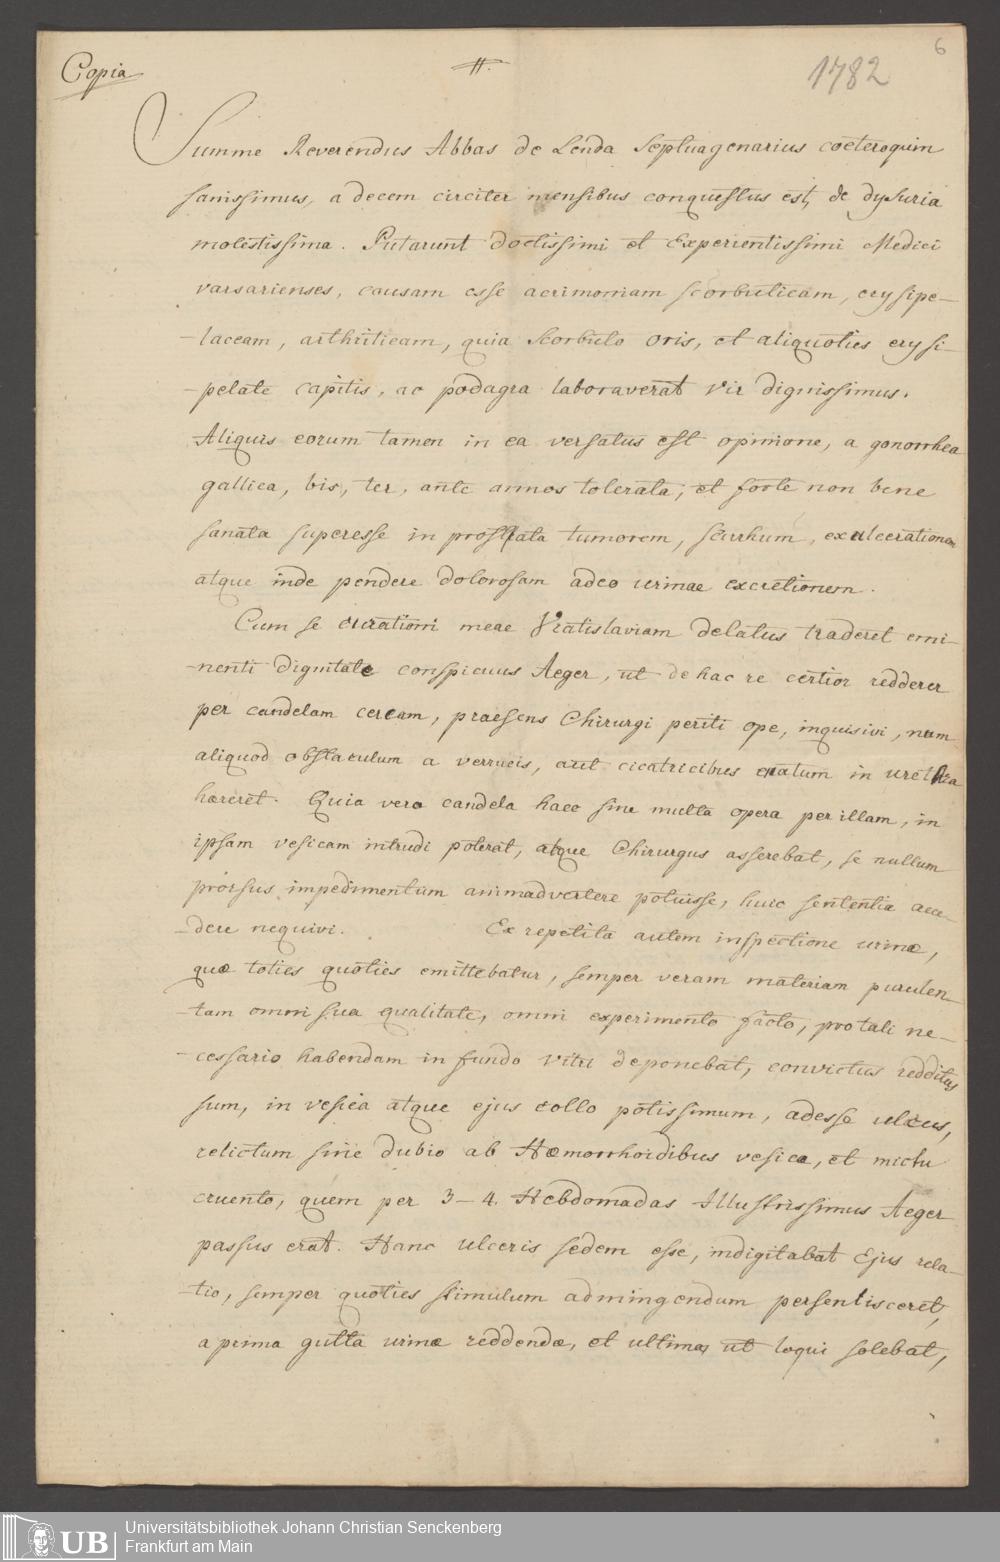 6
Copia
#.
1782
Summe Reverendus Abbas de Lenda Septuagenarius coeteroquin
sanissimus, a decem circiter mensibus conquestus est, de dysuria
molestissima. Putarunt doctissimi et Experientissimi Medici
varsavienses, causam esse acrimoniam scorbuticam, erysipe-
-laceam, arthriticam, quia Scorbuto oris, et aliquoties erysi-
-pelate capitis, ac podagra laboraverat vir dignissimus.
Aliquis eorum tamen in ea versatus est opinione, a gonorrhea
gallica, bis, ter, ante annos tolerata, et forte non bene
sanata superesse in prostata tumorem, scirrhum, exulcerationem
atque inde pendere dolorosam adeo urinae excretionem.
Cum se curationi meae Vratislaviam delatus traderet emi-
-nenti dignitate conspicuus Aeger, ut de hac re certior redderer
per candelam ceream, praesens Chirurgi periti ope, inquisivi, num
aliquod obstaculum a verrucis, aut cicatricibus enatum in urethra
haereret. Quia vero candela haec sine multa opera per illam, in
ipsam vesicam intrudi poterat, atque Chirurgus asserebat, se nullum
prorsus impedimentum animadvertere potuisse, huic sententiae acce-
-dere nequivi. Ex repetita autem inspectione urinæ,
quæ toties quoties emittebatur, semper veram materiam purulen-
-tam omni sua qualitate, omni experimento facto, pro tali ne-
-cessario habendam in fundo vitri deponebat, convictus redditus
sum, in vesica atque ejus collo potissimum, adesse ulcus,
relictum sine dubio ab Hæmorrhoidibus vesicæ, et mictu
cruento, quem per 3-4. Hebdomadas Illustrissimus Aeger
passus erat. Hanc ulceris sedem esse, indigitabat Ejus rela-
-tio, semper quoties stimulum ad mingendum persentisceret,
a prima gutta urinæ reddendæ, et ultima, ut loqui solebat,
UB
Universitätsbibliothek Johann Christian Senckenberg
Frankfurt am Main